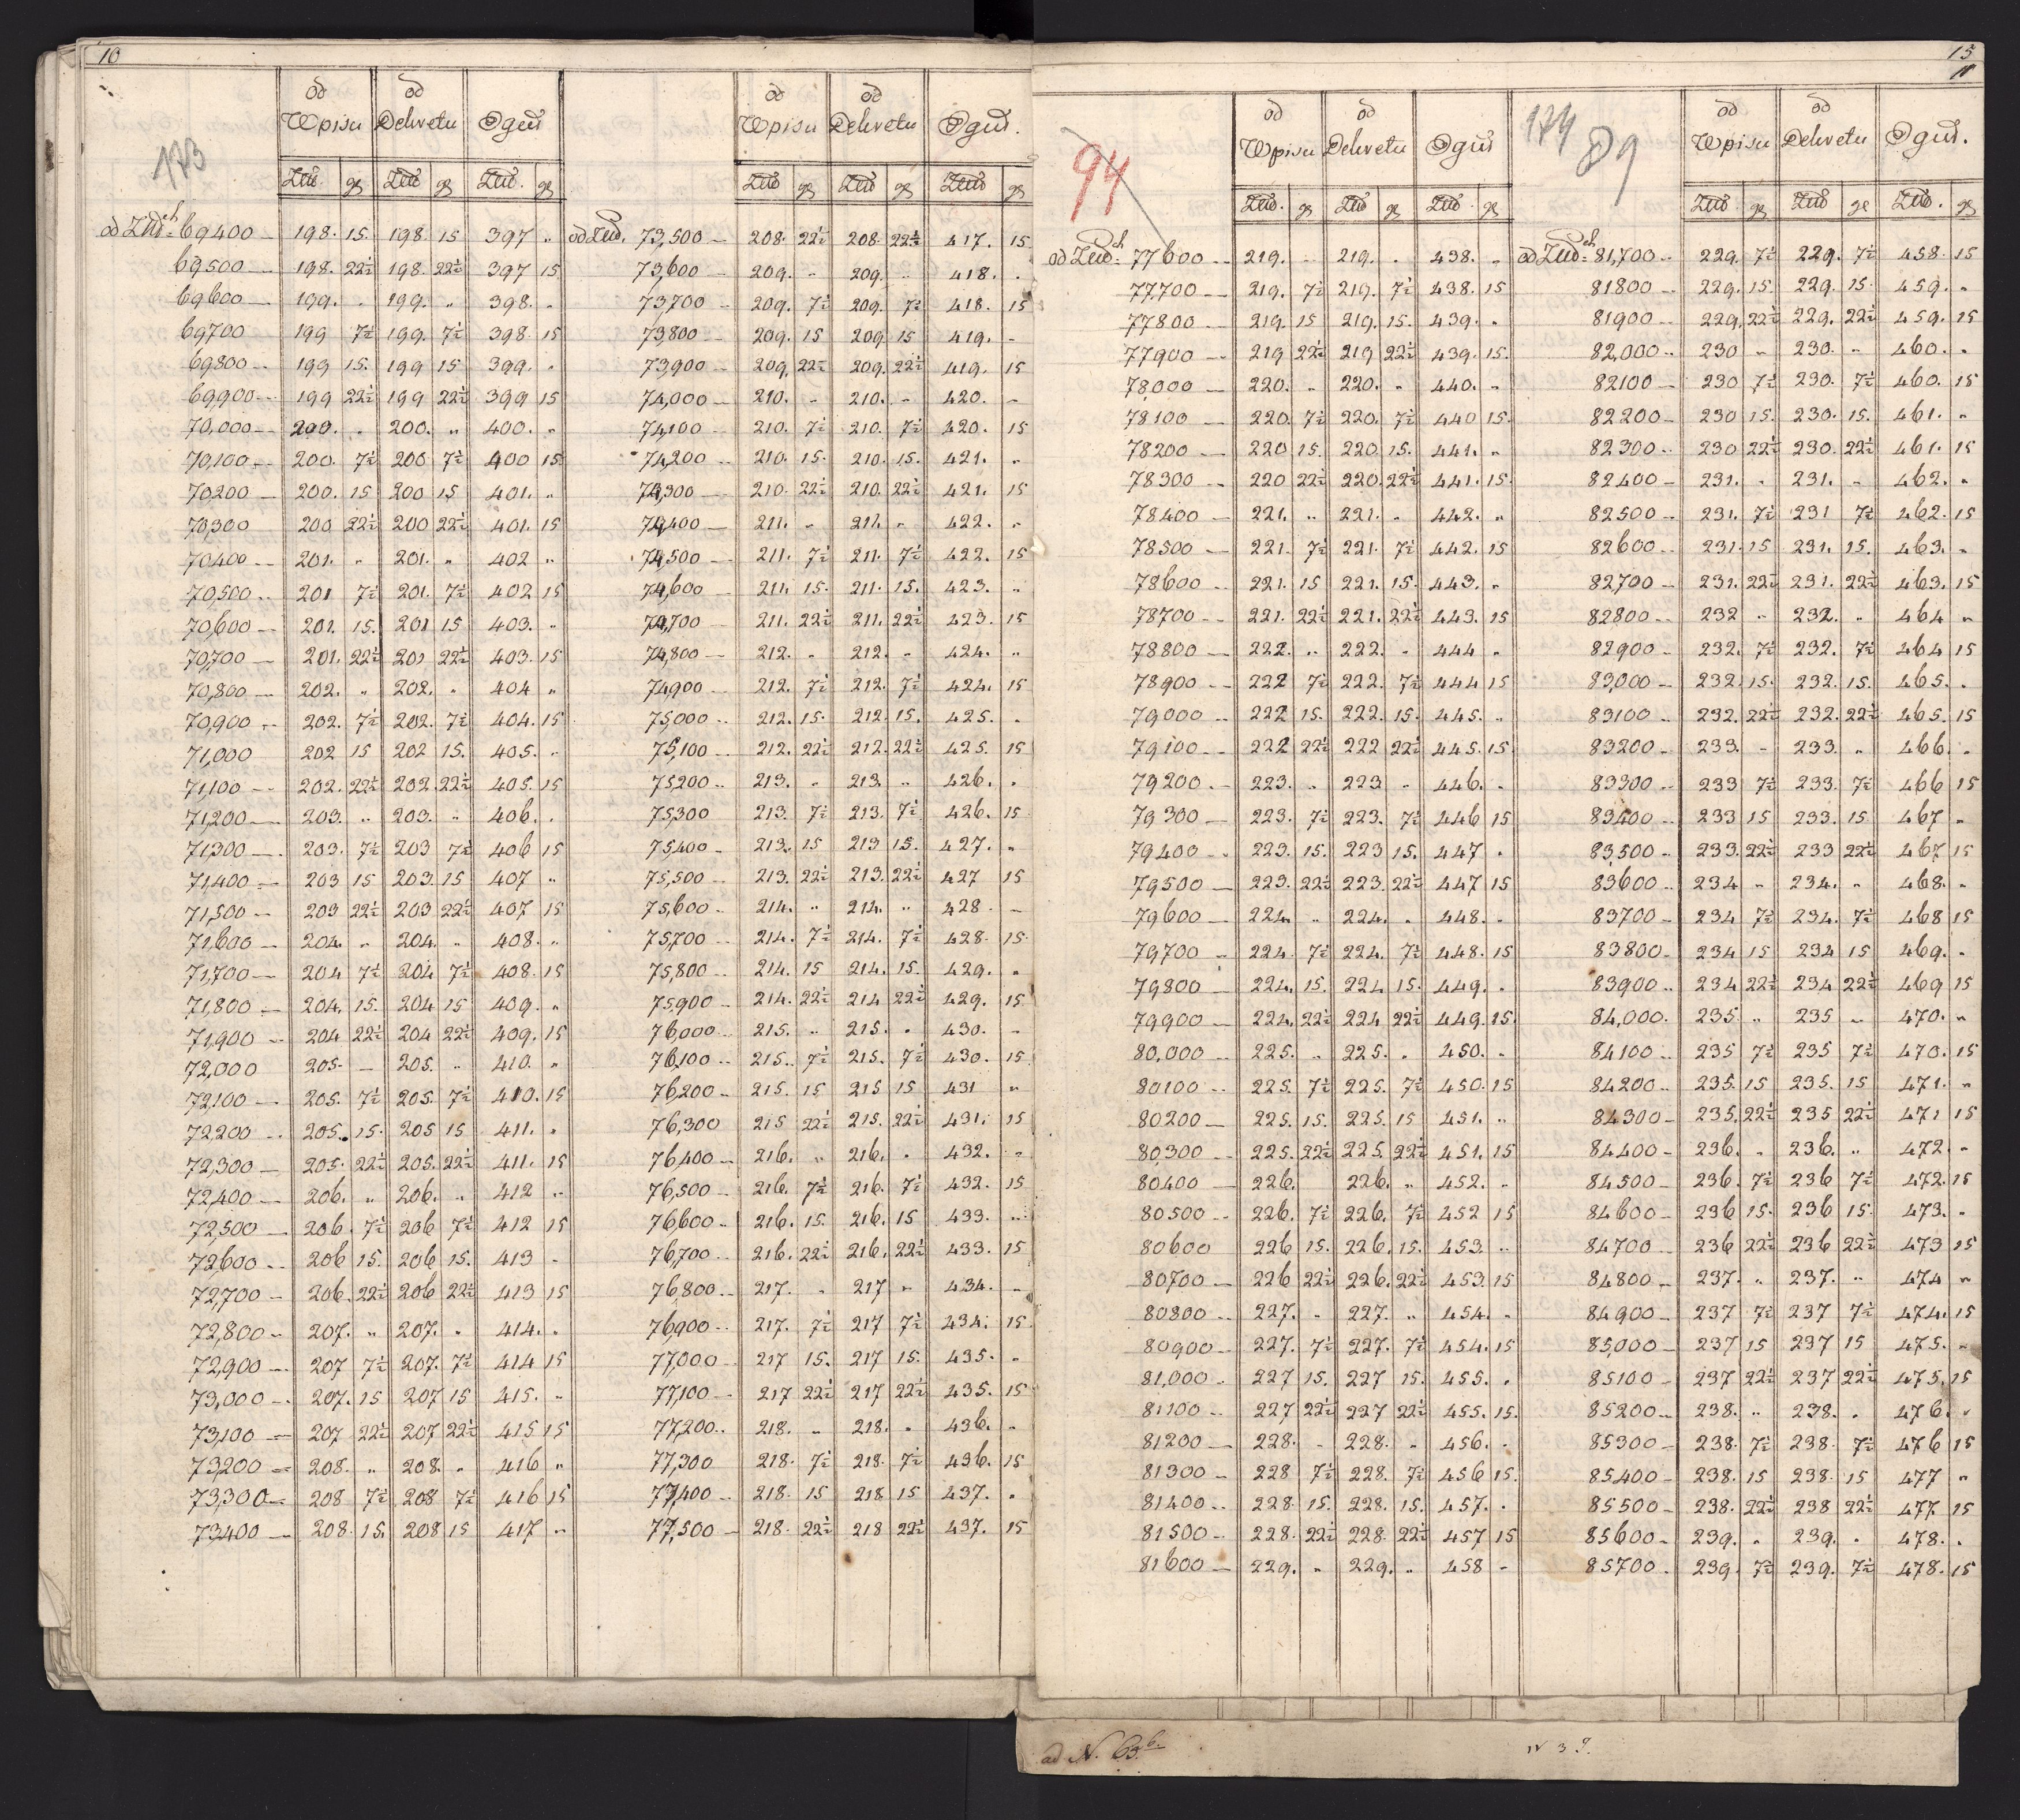 10
173
od Wpisu od Dekretu Oguł
Złł. gr Złł gr Złł. gr
od Złłch 69400 — 198. 15. 198 15 397 „
69500 — 198. 22½ 198. 22½ 397 15
69600 — 199. „ 199. „ 398. „
69700 199 7½ 199. 7½ 398 15
69800 — 199 15. 199 15 399. „
69,900 — 199 22½ 199 22½ 399 15
70,000 — 200. „ 200. „ 400. „
70,100 — 200. 7½ 200 7½ 400 15
70,200 — 200. 15 200 15 401. „
70,300 200 22½ 200 22½ 401. 15
70,400 — 201. „ 201. „ 402 „
70,500 — 201 7½ 201. 7½ 402 15
70,600 — 201. 15. 201 15 403. „
70,700 — 201. 22½ 201 22½ 403. 15
70,800 — 202. „ 202. „ 404 „
70,900 — 202. 7½ 202. 7½ 404. 15
71,000 202 15 202 15. 405. „
71,100 — 202. 22½ 202. 22½ 405. 15
71,200 — 203. „ 203. „ 406. „
71,300 — 203. 7½ 203 7½ 406 15
71,400 — 203 15 203. 15 407 „
71,500 — 203 22½ 203 22½ 407 15
71,600 — 204. „ 204. „ 408. „
71,700 — 204 7½ 204 7½ 408. 15
71,800 — 204. 15. 204 15 409. „
71,900 — 204 22½ 204 22½ 409. 15
72,000 205. — 205. „ 410. „
72,100 — 205. 7½ 205. 7½ 410. 15
72,200 — 205. 15. 205 15 411. „
72,300 — 205. 22½ 205. 22½ 411. 15
72,400 — 206. „ 206. „ 412 „
72,500 — 206. 7½ 206 7½ 412 15
72,600 — 206 15. 206 15. 413 „
72,700 — 206. 22½ 206 22½ 413 15
72,800 — 207. „ 207. „ 414. „
72,900 — 207 7½ 207. 7½ 414 15
73,000 — 207. 15 207 15 415. „
73,100 — 207 22½ 207 22½ 415 15
73,200 — 208. „ 208. „ 416 „
73,300 — 208 7½ 208 7½ 416 15
73,400 — 208. 15. 208 15 417 „
od Wpisu od Dekretu Oguł.
Złł gr Złł gr Złł gr
od Złł. 73,500 — 208. 22½ 208. 22½ 417. 15
73,600 — 209. „ 209. „ 418. „
73,700 — 209. 7½ 209. 7½ 418. 15
73,800 — 209. 15 209 15 419. -
73,900 — 209. 22½ 209. 22½ 419. 15
74,000 — 210. - 210. - 420. -
74,100 210. 7½ 210. 7½ 420. 15
74,200 — 210. 15. 210. 15. 421. „
74,300 — 210. 22½ 210. 22½ 421. 15
74,400 — 211. „ 211. „ 422. „
74,500 — 211. 7½ 211. 7½ 422. 15
74,600 — 211. 15. 211. 15. 423. „
74,700 — 211. 22½ 211. 22½ 423. 15
74,800 — 212. „ 212. „ 424. „
74,900 — 212. 7½ 212. 7½ 424. 15
75,000 — 212. 15. 212. 15. 425. „
75,100 — 212. 22½ 212. 22½ 425. 15
75,200 — 213. „ 213 „ 426. „
75,300 213. 7½ 213. 7½ 426. 15
75,400 — 213. 15 213 15. 427. „
75,500 — 213. 22½ 213. 22½ 427 15
75,600 — 214. „ 214. „ 428. —
75,700 — 214. 7½ 214. 7½ 428. 15
75,800 — 214. 15 214. 15. 429. „
75,900 — 214. 22½ 214 22½ 429. 15
76,000 — 215. „ 215. „ 430. -
76,100 — 215. 7½ 215. 7½ 430. 15
76,200 — 215. 15 215 15 431 „
76,300 215 22½ 215. 22½ 431. 15
76,400 — 216. „ 216. „ 432. „
76,500 — 216. 7½ 216. 7½ 432. 15
76,600 — 216. 15. 216. 15 433. „
76,700 — 216. 22½ 216. 22½ 433. 15
76,800 — 217. „ 217 „ 434. —
76,900 — 217. 7½ 217 7½ 434. 15
77,000 — 217 15. 217 15. 435. „
77,100 — 217 22½ 217 22½ 435. 15
77,200 — 218. „ 218. „ 436. -
77,300 218. 7½ 218. 7½ 436. 15
77,400 — 218. 15 218 15 437. „
77,500 — 218. 22½ 218 22½ 437. 15
15
11
94
od Wpisu od Dekretu Oguł
Złł. gr Złł gr Złł. gr
od Złłch 77600 — 219. „ 219. „ 438. „
77,700 — 219. 7½ 219. 7½ 438. 15
77800 — 219. 15 219. 15. 439. „
77900 — 219 22½ 219 22½ 439. 15.
78,000 — 220. „ 220. „ 440. „
78100 — 220. 7½ 220. 7½ 440 15.
78200 — 220 15. 220. 15. 441. „
78300 — 220 22½ 220. 22½ 441. 15.
78400 — 221. „ 221. „ 442. „
78500 — 221. 7½ 221. 7½ 442. 15
78600 — 221. 15 221. 15. 443. „
78700 — 221. 22½ 221. 22½ 443. 15
78800 — 222. „ 222. „ 444 „
78900 — 222 7½ 222. 7½ 444 15
79000 — 222 15. 222. 15. 445. „
79100 — 222 22½ 222 22½ 445. 15.
79200 — 223. „ 223 „ 446. „
79300 — 223. 7½ 223. 7½ 446 15
79400 — 223. 15. 223 15. 447 „
79500 — 223. 22½ 223. 22½ 447 15
79600 — 224. „ 224. „ 448. „
79700 — 224. 7½ 224. 7½ 448. 15
79800 — 224. 15. 224 15. 449. „
79900 — 224. 22½ 224 22½ 449. 15.
80,000 — 225. „ 225. „ 450. „
80100 — 225. 7½ 225. 7½ 450. 15
80200 — 225. 15. 225. 15 451. „
80300 — 225. 22½ 225. 22½ 451. 15
80400 — 226. 226. „ 452. „
80500 — 226. 7½ 226. 7½ 452 15
80600 226 15. 226. 15. 453. „
80700 — 226 22½ 226. 22½ 453. 15
80800 — 227. „ 227. „ 454. „
80900 — 227. 7½ 227. 7½ 454. 15
81,000 — 227 15. 227 15. 455. „
81100 — 227 22½ 227 22½ 455. 15.
81200 — 228. „ 228. „ 456. „
81300 — 228 7½ 228. 7½ 456 15.
81400 — 228. 15. 228. 15. 457. „
81500 — 228. 22½ 228. 22½ 457 15
81600 — 229. „ 229. „ 458 -
174
89
od Wpisu od Dekretu Oguł.
Złł. gr Złł gr Złł. gr
od Złłch 81,700 — 229. 7½ 229. 7½ 458. 15
81800 — 229. 15. 229. 15. 459. „
81900 — 229. 22½ 229. 22½ 459. 15
82,000 — 230 „ 230. „ 460. „
82100 — 230 7½ 230. 7½ 460. 15
82200 — 230 15. 230. 15. 461. „
82300 — 230 22½ 230. 22½ 461. 15
82400 — 231. „ 231. „ 462. „
82500 — 231. 7½ 231 7½ 462. 15
82600 — 231. 15 231. 15. 463. „
82700 — 231. 22½ 231. 22½ 463. 15
82800 — 232 „ 232. „ 464 „
82900 — 232. 7½ 232. 7½ 464 15
83,000 — 232. 15. 232. 15. 465. „
83100 — 232. 22½ 232. 22½ 465. 15
83200 — 233. - 233. „ 466. „
83300 — 233 7½ 233. 7½ 466 15
83400 — 233 15 233. 15 467 „
83,500 — 233. 22½ 233 22½ 467 15
83600 — 234 „ 234. „ 468. „
83700 — 234 7½ 234. 7½ 468 15
83800 — 234 15 234 15 469. „
83900 — 234 22½ 234 22½ 469 15
84,000. 235. „ 235 „ 470. „
84100 — 235 7½ 235 7½ 470. 15
84200 — 235. 15 235. 15 471. „
84300 — 235. 22½ 235 22½ 471 15
84400 — 236. „ 236. „ 472. „
84500 — 236. 7½ 236 7½ 472. 15
84600 — 236 15. 236 15. 473. „
84700 — 236 22½ 236 22½ 473 15
84800 — 237. „ 237. „ 474 „
84900 — 237 7½ 237 7½ 474. 15
85,000 — 237 15 237 15 475. „
85100 — 237 22½ 237 22½ 475. 15
85200 — 238. „ 238. „ 476. „
85300 — 238. 7½ 238. 7½ 476 15
85,400 — 238. 15 238. 15 477 „
85500 — 238. 22½ 238 22½ 477. 15
85600 — 239. „ 239. „ 478. „
85700 — 239. 7½ 239. 7½ 478. 15
ad N. 63 b.
N 39.